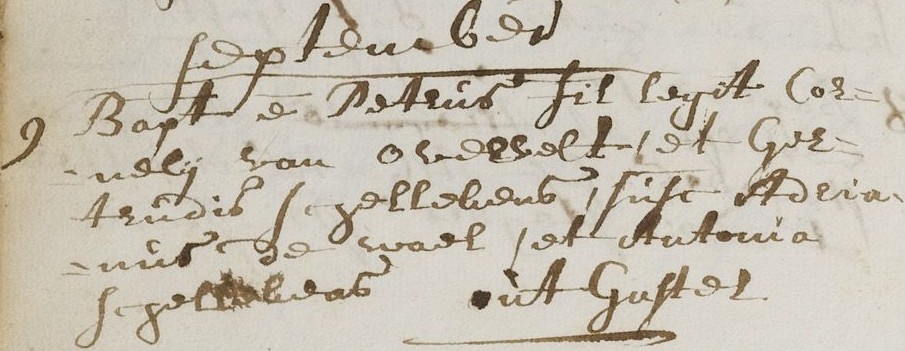 september
9 Bapt e Petrus fil legit Cor=
=nelij van Overvelt / et Ger=
trudis schellekens / susc Adria=
=nus de wael / et Antonia
schellekens uut Gastel